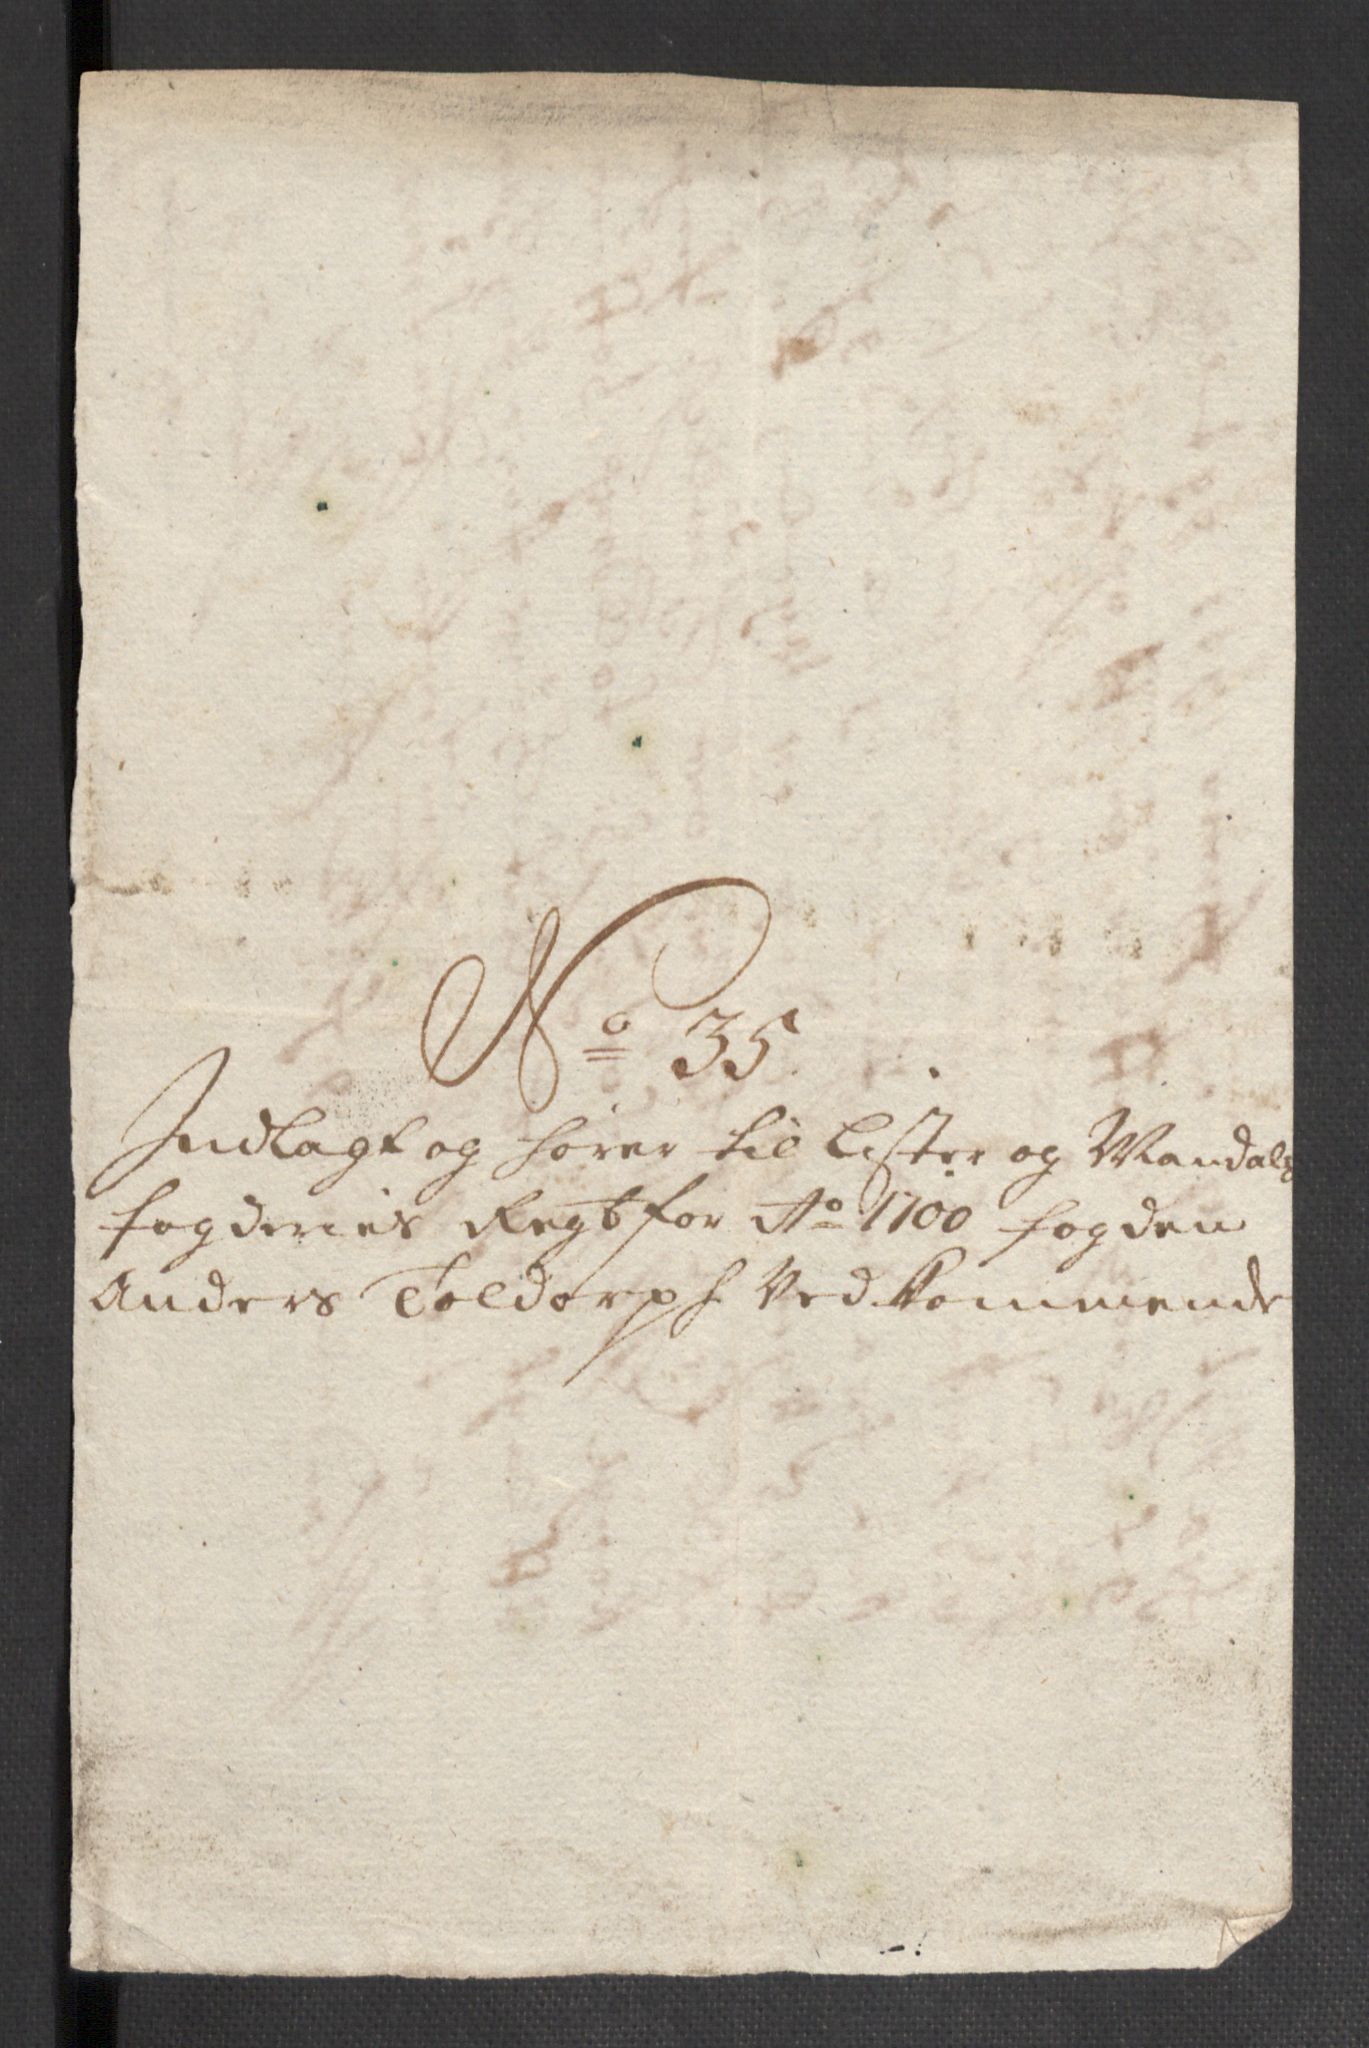 No 35.
Indlagt og hører til Lister og Mandals
fogderies Regb for Ao 1700 fogden
Anders Toldorph Vedkommende